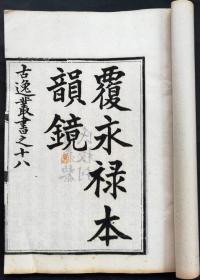 覆永禄本
韻鏡
古逸叢書之十八